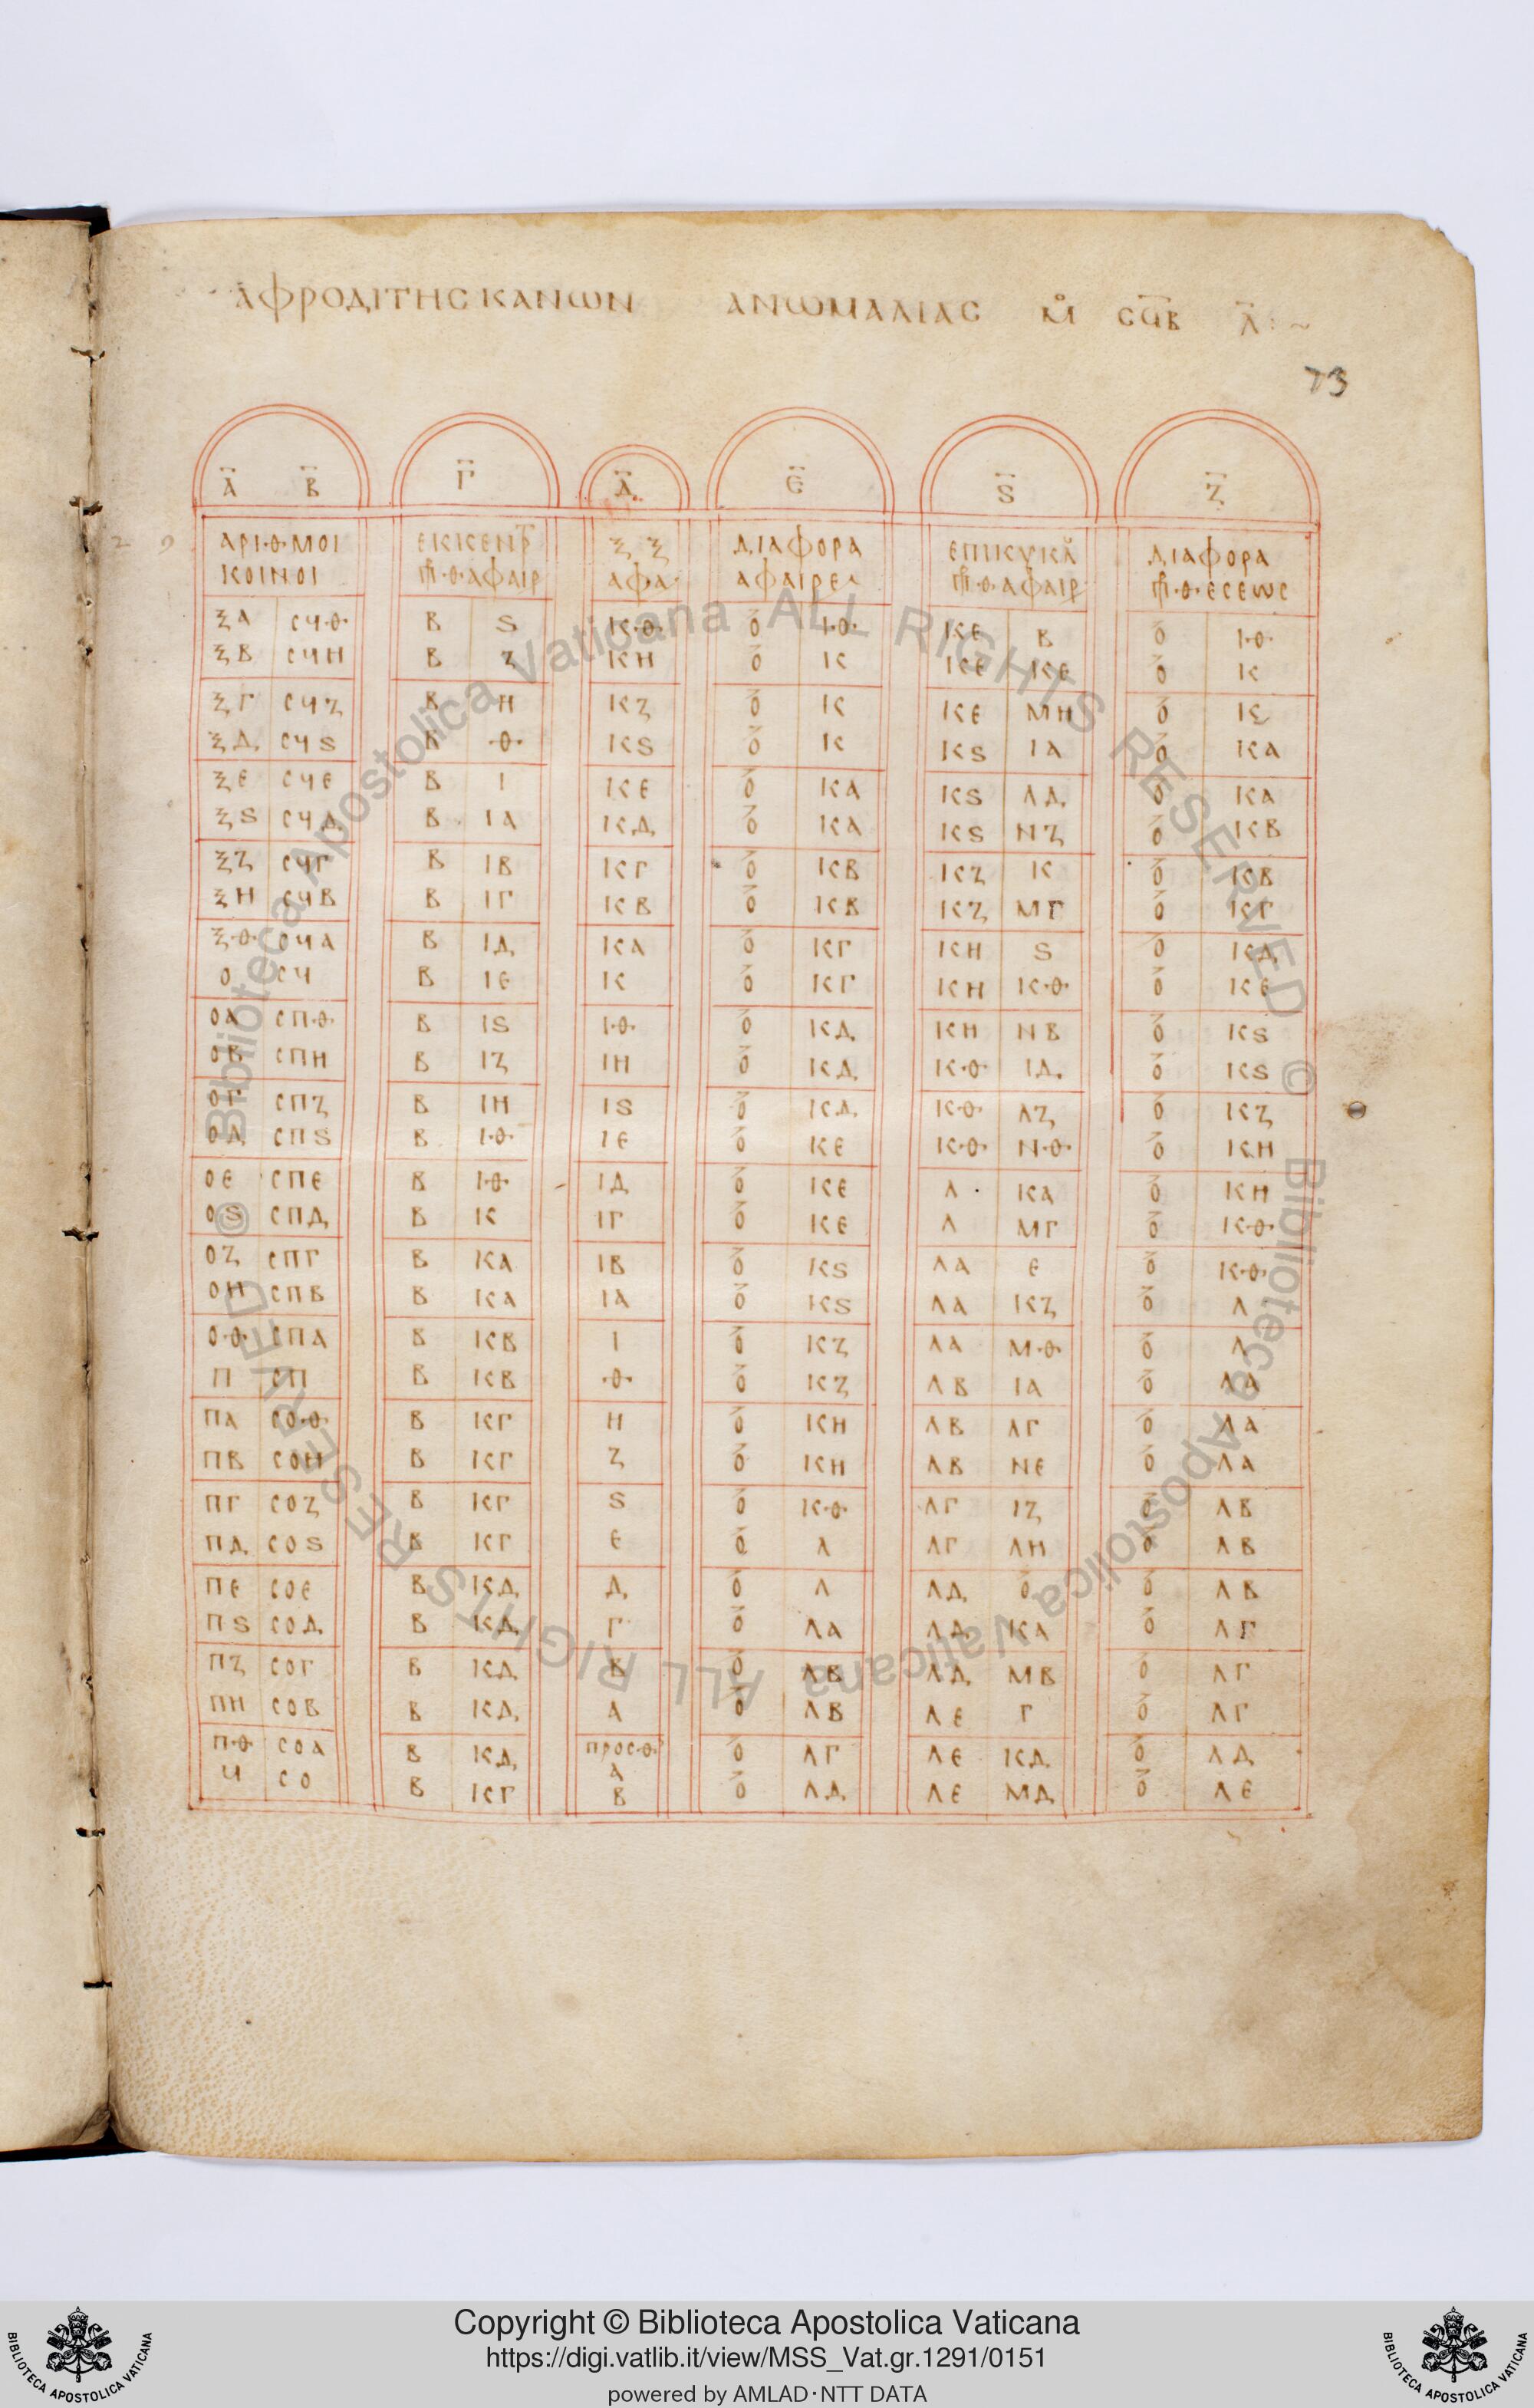 ΑΦΡΟΔΙΤΗϹ ΚΑΝΩΝ ΑΝΩΜΑΛΙΑϹ Μο ϹϤΒ Λ :~
73
Α Β Γ Δ Ε Ϛ Ζ
ΑΡΙΘΜΟΙ ΕΚΚΕΝΤΡ ΞΞ ΔΙΑΦΟΡΑ ΕΠΙΚΥΚΛ ΔΙΑΦΟΡΑ
ΚΟΙΝΟΙ ΠΡΘΑΦΑΙΡ ΑΦΑ ΑΦΑΙΡΕ ΠΡΘΑΦΑΙΡ ΠΡΘΕϹΕΩϹ
ΞΑ ϹϤΘ Β Ϛ ΚΘ Ο ΙΘ ΚΕ Β Ο ΙΘ
ΞΒ ϹϤΗ Β Ζ ΚΗ Ο Κ ΚΕ ΚΕ Ο Κ
ΞΓ ϹϤΖ Β Η ΚΖ Ο Κ ΚΕ ΜΗ Ο Κ
ΞΔ ϹϤϚ Β Θ ΚϚ Ο Κ ΚϚ ΙΑ Ο ΚΑ
ΞΕ ϹϤΕ Β Ι ΚΕ Ο ΚΑ ΚϚ ΛΔ Ο ΚΑ
ΞϚ ϹϤΔ Β ΙΑ ΚΔ Ο ΚΑ ΚϚ ΝΖ Ο ΚΒ
ΞΖ ϹϤΓ Β ΙΒ ΚΓ Ο ΚΒ ΚΖ Κ Ο ΚΒ
ΞΗ ϹϤΒ Β ΙΓ ΚΒ Ο ΚΒ ΚΖ ΜΓ Ο ΚΓ
ΞΘ ϹϤΑ Β ΙΔ ΚΑ Ο ΚΓ ΚΗ Ϛ Ο ΚΔ
Ο ϹϤ Β ΙΕ Κ Ο ΚΓ ΚΗ ΚΘ Ο ΚΕ
ΟΑ ϹΠΘ Β ΙϚ ΙΘ Ο ΚΔ ΚΗ ΝΒ Ο ΚϚ
ΟΒ ϹΠΗ Β ΙΖ ΙΗ Ο ΚΔ ΚΘ ΙΔ Ο ΚϚ
ΟΓ ϹΠΖ Β ΙΗ ΙϚ Ο ΚΔ ΚΘ ΛΖ Ο ΚΖ
ΟΔ ϹΠϚ Β ΙΘ ΙΕ Ο ΚΕ ΚΘ ΝΘ Ο ΚΗ
ΟΕ ϹΠΕ Β ΙΘ ΙΔ Ο ΚΕ Λ ΚΑ Ο ΚΗ
ΟϚ ϹΠΔ Β Κ ΙΓ Ο ΚΕ Λ ΜΓ Ο ΚΘ
ΟΖ ϹΠΓ Β ΚΑ ΙΒ Ο ΚϚ ΛΑ Ε Ο ΚΘ
ΟΗ ϹΠΒ Β ΚΑ ΙΑ Ο ΚϚ ΛΑ ΚΖ Ο Λ
ΟΘ ϹΠΑ Β ΚΒ Ι Ο ΚΖ ΛΑ ΜΘ Ο Λ
Π ϹΠ Β ΚΒ Θ Ο ΚΖ ΛΒ ΙΑ Ο ΛΑ
ΠΑ ϹΟΘ Β ΚΓ Η Ο ΚΗ ΛΒ ΛΓ Ο ΛΑ
ΠΒ ϹΟΗ Β ΚΓ Ζ Ο ΚΗ ΛΒ ΝΕ Ο ΛΑ
ΠΓ ϹΟΖ Β ΚΓ Ϛ Ο ΚΘ ΛΓ ΙΖ Ο ΛΒ
ΠΔ ϹΟϚ Β ΚΓ Ε Ο Λ ΛΓ ΛΗ Ο ΛΒ
ΠΕ ϹΟΕ Β ΚΔ Δ Ο Λ ΛΔ Ο Ο ΛΒ
ΠϚ ϹΟΔ Β ΚΔ Γ Ο ΛΑ ΛΔ ΚΑ Ο ΛΓ
ΠΖ ϹΟΓ Β ΚΔ Β Ο ΛΒ ΛΔ ΜΒ Ο ΛΓ
ΠΗ ϹΟΒ Β ΚΔ Α Ο ΛΒ ΛΕ Γ Ο ΛΓ
ΠΘ ϹΟΑ Β ΚΔ ΠΡΟϹΘ Α Ο ΛΓ ΛΕ ΚΔ Ο ΛΔ
Ϥ ϹΟ Β ΚΓ Β Ο ΛΔ ΛΕ ΜΔ Ο ΛΕ
© Biblioteca Apostolica Vaticana ALL RIGHTS RESERVED © Biblioteca Apostolica Vaticana ALL RIGHTS RESERVED
Copyright © Biblioteca Apostolica Vaticana
https://digi.vatlib.it/view/MSS_Vat.gr.1291/0151
powered by AMLAD·NTT DATA
BIBLIOTECA APOSTOLICA VATICANA
BIBLIOTECA APOSTOLICA VATICANA